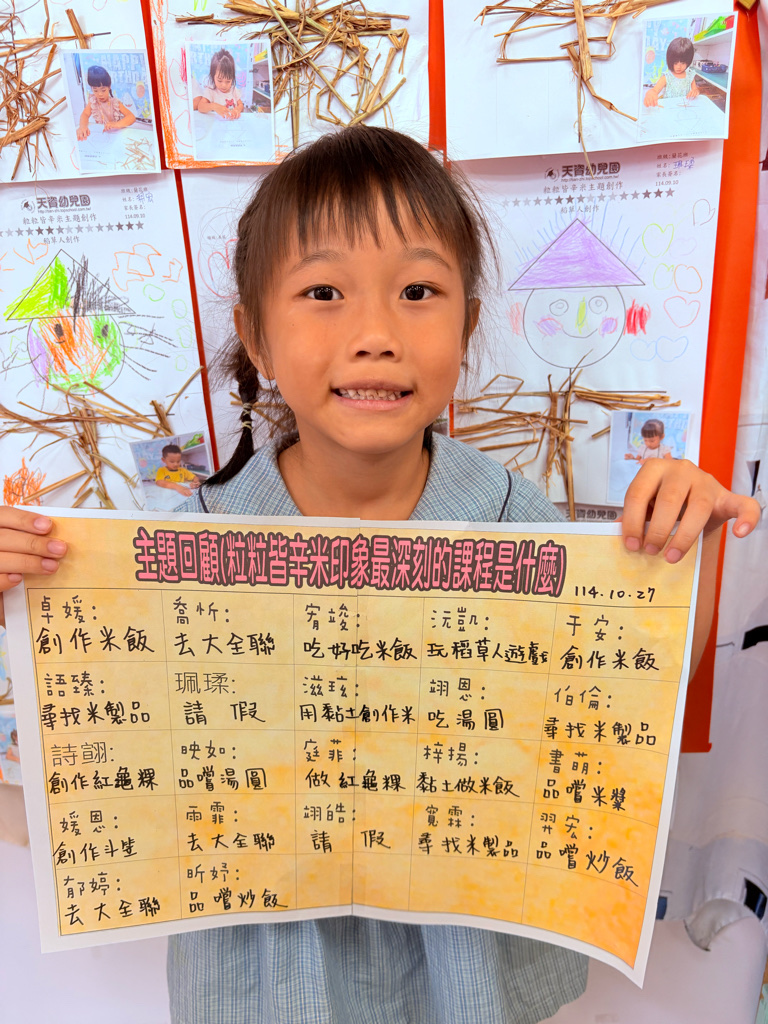 天資幼兒園
粒粒皆辛米主題創作
114.09.10
天資幼兒園
粒粒皆辛米主題創作
稻草人創作
114.09.10
主題回顧(粒粒皆辛米印象最深刻的課程是什麼)
114.10.27
卓媛:
創作米飯
喬忻:
去大全聯
宥竣:
吃好吃米飯
沅豈凡:
玩稻草人遊戲
于安:
創作米飯
語臻:
尋找米製品
珮瑈:
請 假
滋玹:
用黏土創作米
翊恩:
吃湯圓
伯倫:
尋找米製品
詩翩:
創作紅龜粿
映如:
品嚐湯圓
庭菲:
做紅龜粿
梓揚:
黏土做米飯
書萌:
品嚐米漿
媛恩:
創作斗笠
雨霏:
去大全聯
翊皓:
請 假
寬霖:
尋找米製品
羿宏:
品嚐炒飯
郁婷:
去大全聯
昕妤:
品嚐炒飯